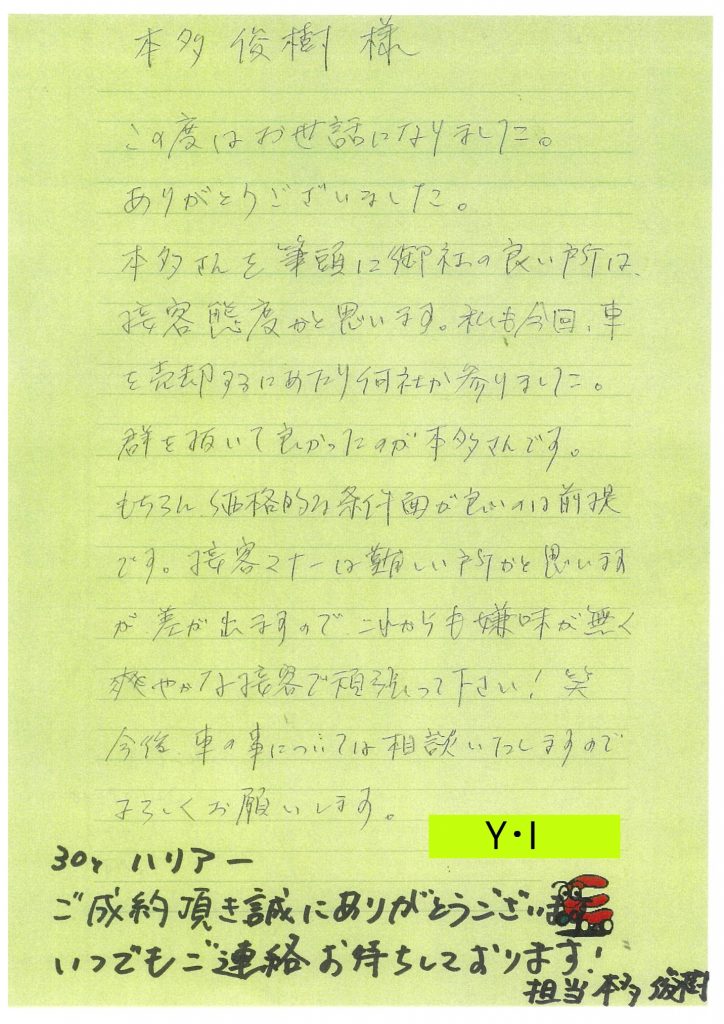 本多 俊樹 様
この度はお世話になりました。
ありがとうございました。
本多さんを筆頭に御社の良い所は、
接客態度かと思います。私も今回、車
を売却するにあたり何社か参りました。
群を抜いて良かったのが本多さんです。
もちろん、価格的な条件面が良いのは前提
です。接客マナーは難しい所かと思います
が差が出ますので これからも嫌味が無く
爽やかな接客で頑張って下さい！笑
今後、車の事については相談いたしますので
よろしくお願いします。
Y・I
30y ハリアー
ご成約頂き誠にありがとうございます
いつでもご連絡お待ちしております！
担当 本多 俊樹